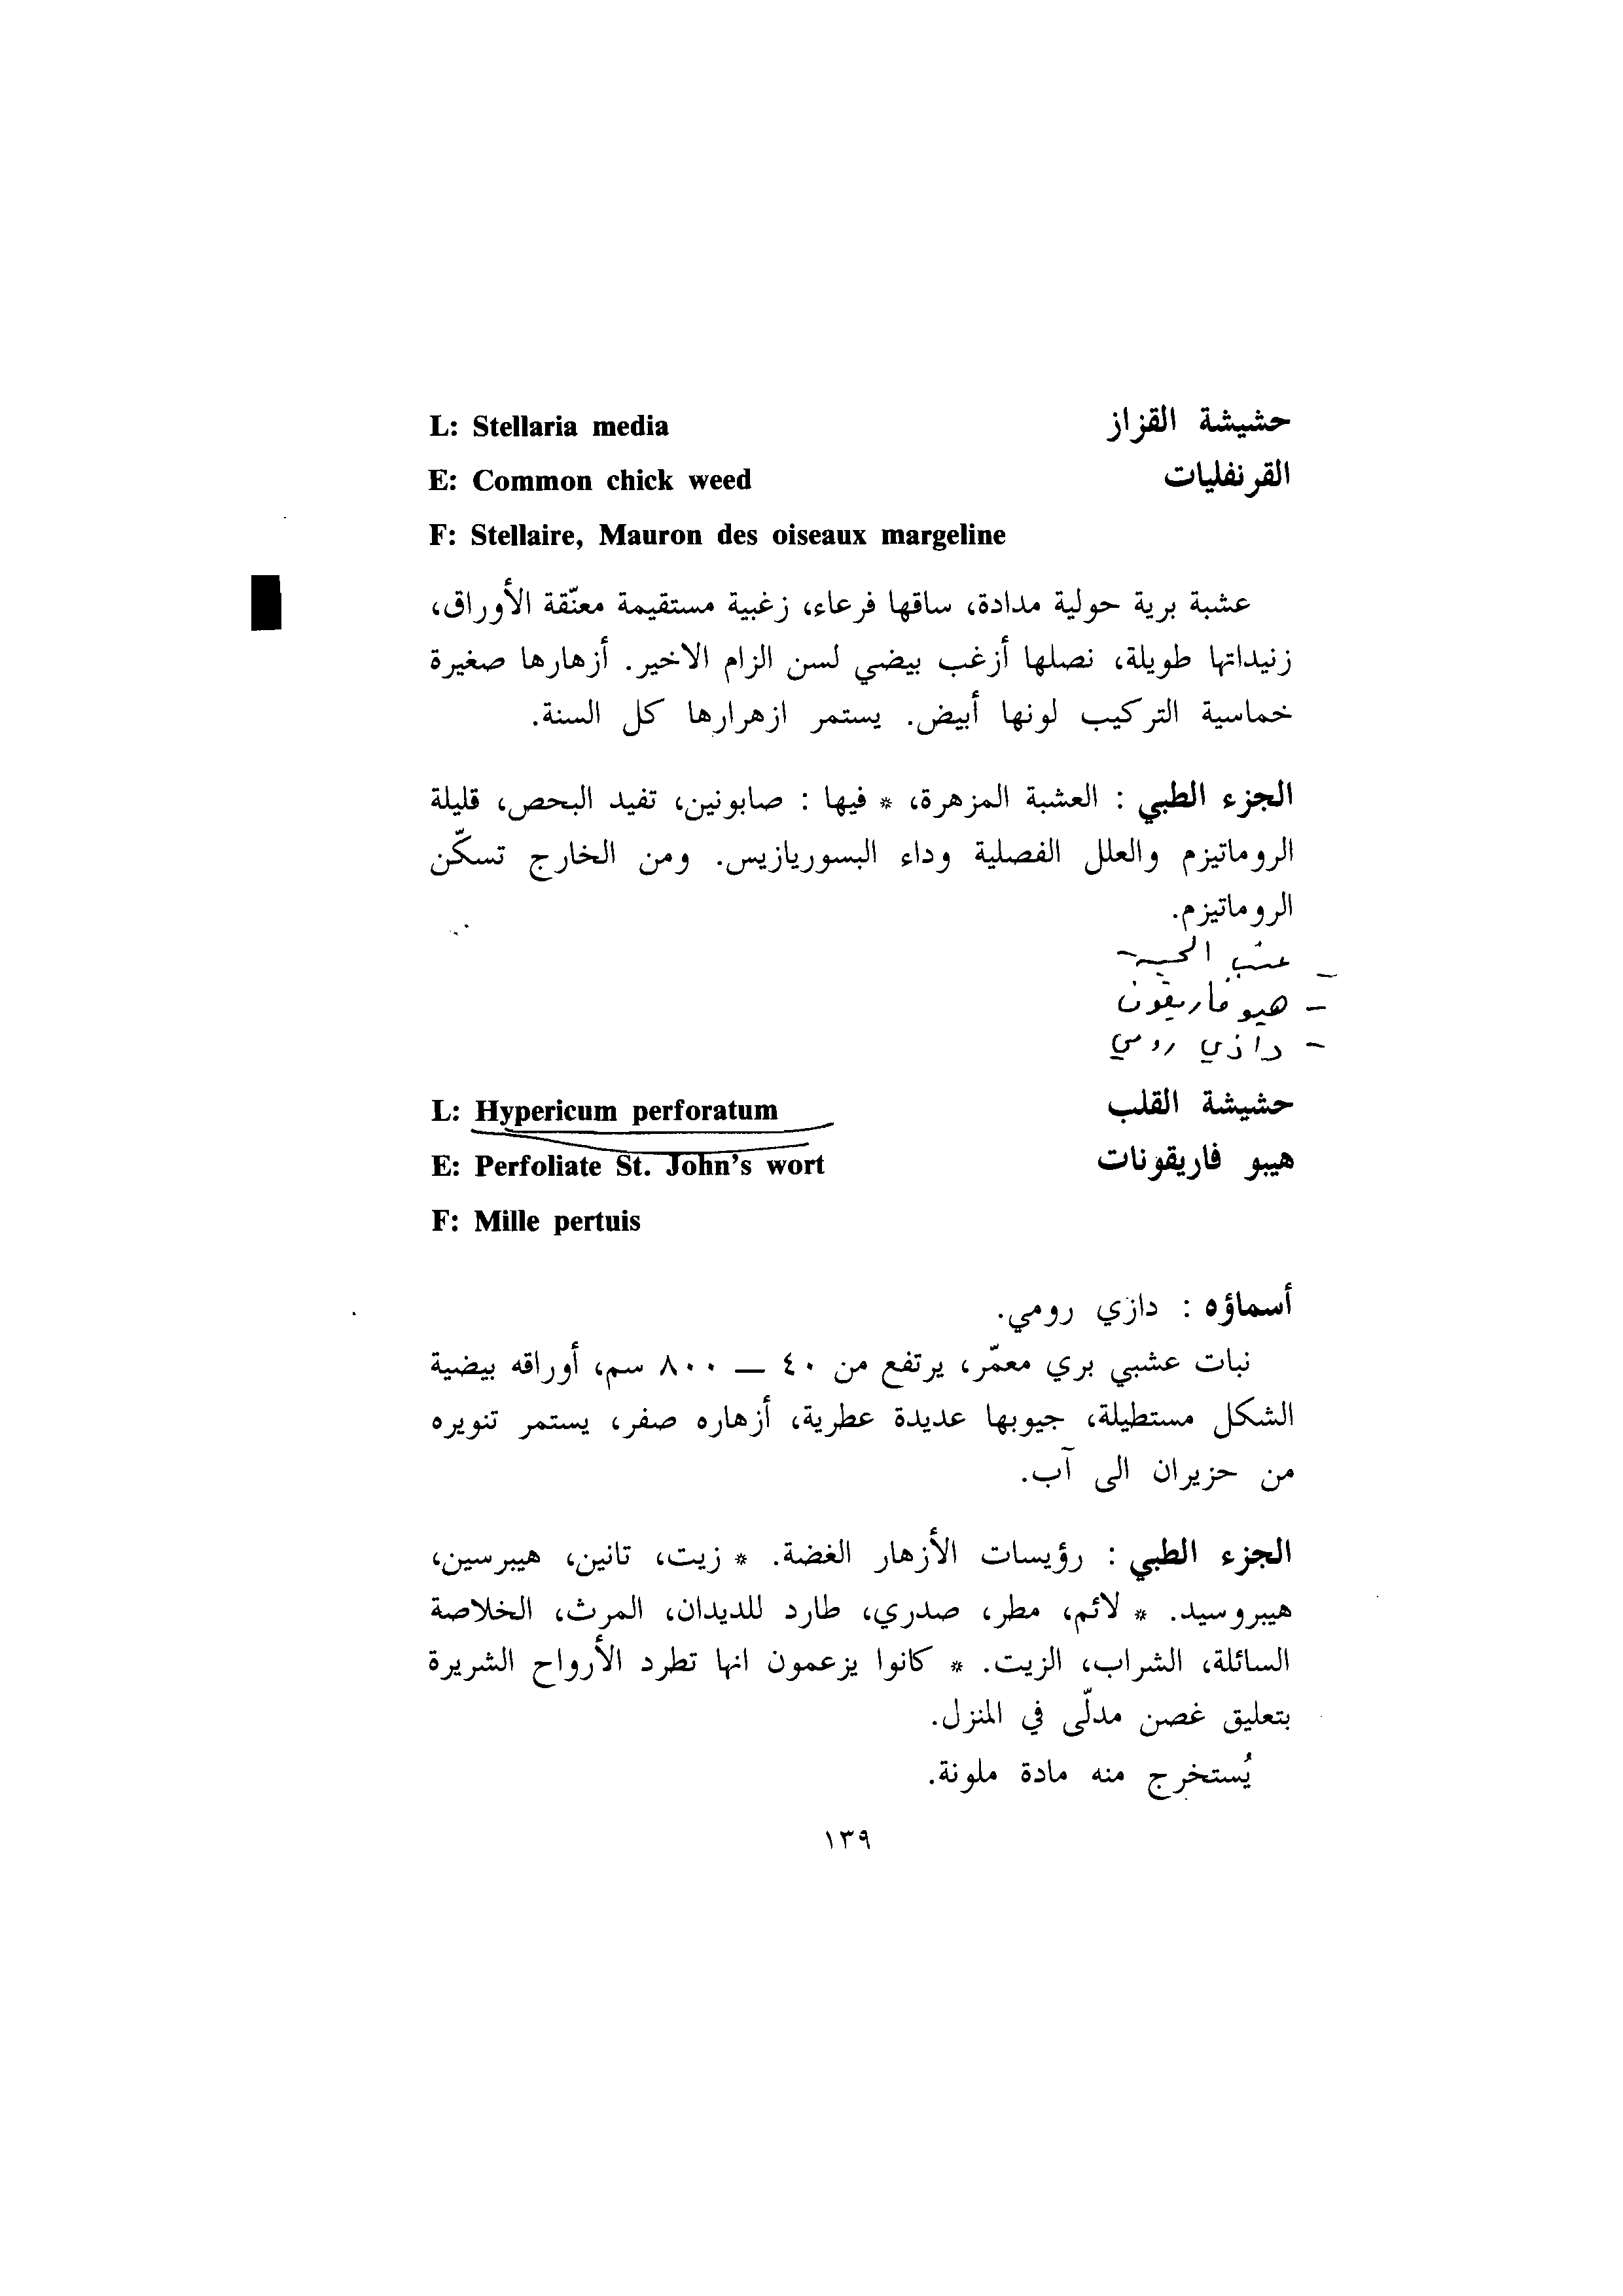 حشيشة القزاز
L: Stellaria media
القرنفليات
E: Common chick weed
F: Stellaire, Mauron des oiseaux margeline
عشبة برية حولية مدادة، ساقها فرعاء، زغبية مستقيمة معنّقة الأوراق،
زنيداتها طويلة، نصلها أزغب بيضي لسن الزام الاخير. أزهارها صغيرة
خماسية التركيب لونها أبيض. يستمر ازهرارها كل السنة.
الجزء الطبي : العشبة المزهرة، * فيها : صابونين، تفيد البحص، قليلة
الروماتيزم والعلل الفصلية وداء البسوريازيس. ومن الخارج تسكّن
الروماتيزم.
– عشب
– هيوفاريقون
– داذي رومي
حشيشة القلب
L: Hypericum perforatum
هيبو فاريقونات
E: Perfoliate St. John's wort
F: Mille pertuis
أسماؤه : دازي رومي.
نبات عشبي بري معمّر، يرتفع من ٤٠ — ٨٠٠ سم، أوراقه بيضية
الشكل مستطيلة، جيوبها عديدة عطرية، أزهاره صفر، يستمر تنويره
من حزيران الى آب.
الجزء الطبي : رؤيسات الأزهار الغضة. * زيت، تانين، هيبرسين،
هيبروسيد. * لائم، مطر، صدري، طارد للديدان، المرث، الخلاصة
السائلة، الشراب، الزيت. * كانوا يزعمون انها تطرد الأرواح الشريرة
بتعليق غصن مدلّى في المنزل.
يُستخرج منه مادة ملونة.
١٣٩